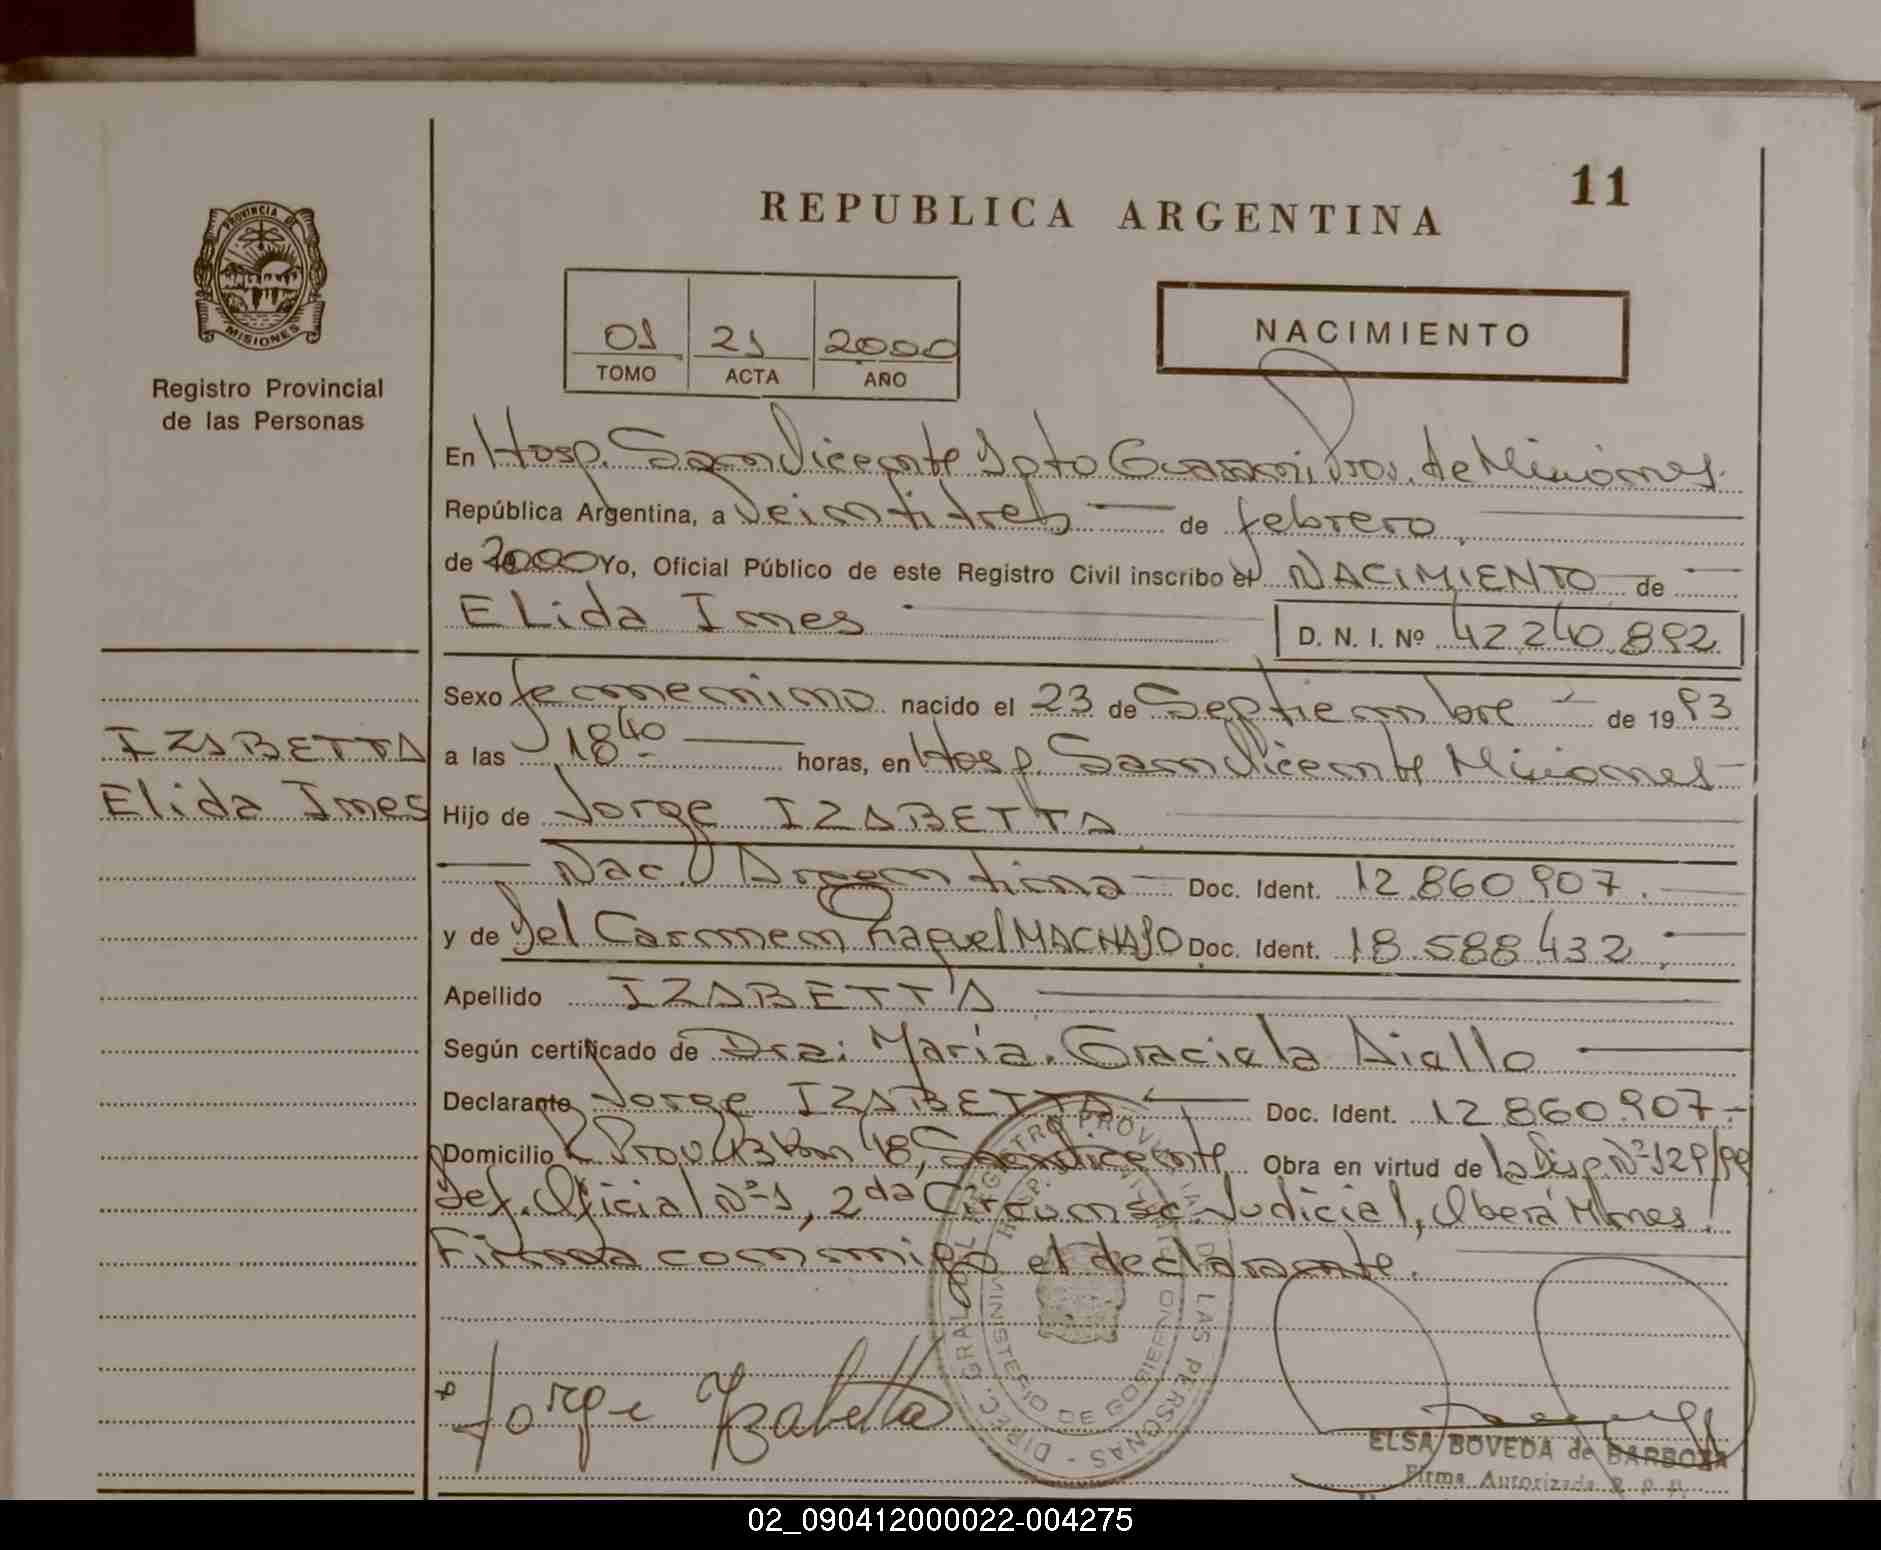 11
REPUBLICA ARGENTINA
PROVINCIA DE
MISIONES
Registro Provincial
de las Personas
01 21 2000
TOMO ACTA AÑO
NACIMIENTO
En Hosp. San Vicente Dpto Guarani Prov. de Misiones.
República Argentina, a Veintitres de febrero
de 2000 Yo, Oficial Público de este Registro Civil inscribo el NACIMIENTO de
ELida Ines D. N. I. Nº 42 240.892
Sexo femenino nacido el 23 de Septiembre de 1993
IZABETTA
a las 18 40 horas, en Hosp. San Vicente Misiones
Elida Ines
Hijo de Jorge IZABETTA
Nac. Argentina Doc. Ident. 12.860.907.
y de Del Carmen Raquel MACHADO Doc. Ident. 18.588.432
Apellido IZABETTA
Según certificado de Dra: María Graciela Aiello
Declarante Jorge IZABETTA Doc. Ident. 12.860.907
Domicilio R Prov Km 18, San Vicente Obra en virtud de la Disp. Nº 129/99
Def. Oficial Nº 1, 2da Circunsc. Judicial, Oberá Mnes!
Firma conmigo el declarante.
DIREC. GRAL. REGISTRO PROVINCIAL DE LAS PERSONAS
MINISTERIO DE GOBIERNO
Jorge Izabetta
ELSA BOVEDA de BARBOZA
Firma Autorizada R. P. P.
02_090412000022-004275